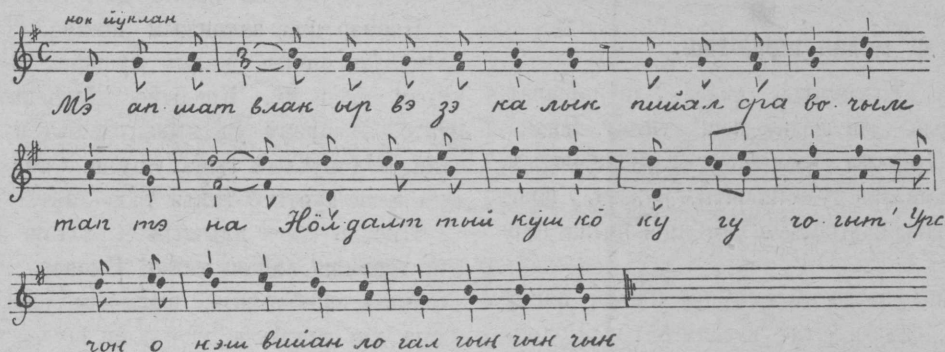 кок йӱклан
Мэ ап шат влак ыр вэ зэ ка лык пийал сра во. чым
тап тэ на Нӧл далт тый кӱш кӧ ку гу чо. гыт' Урс
чон о нэш вийан ло гал гын гын гын